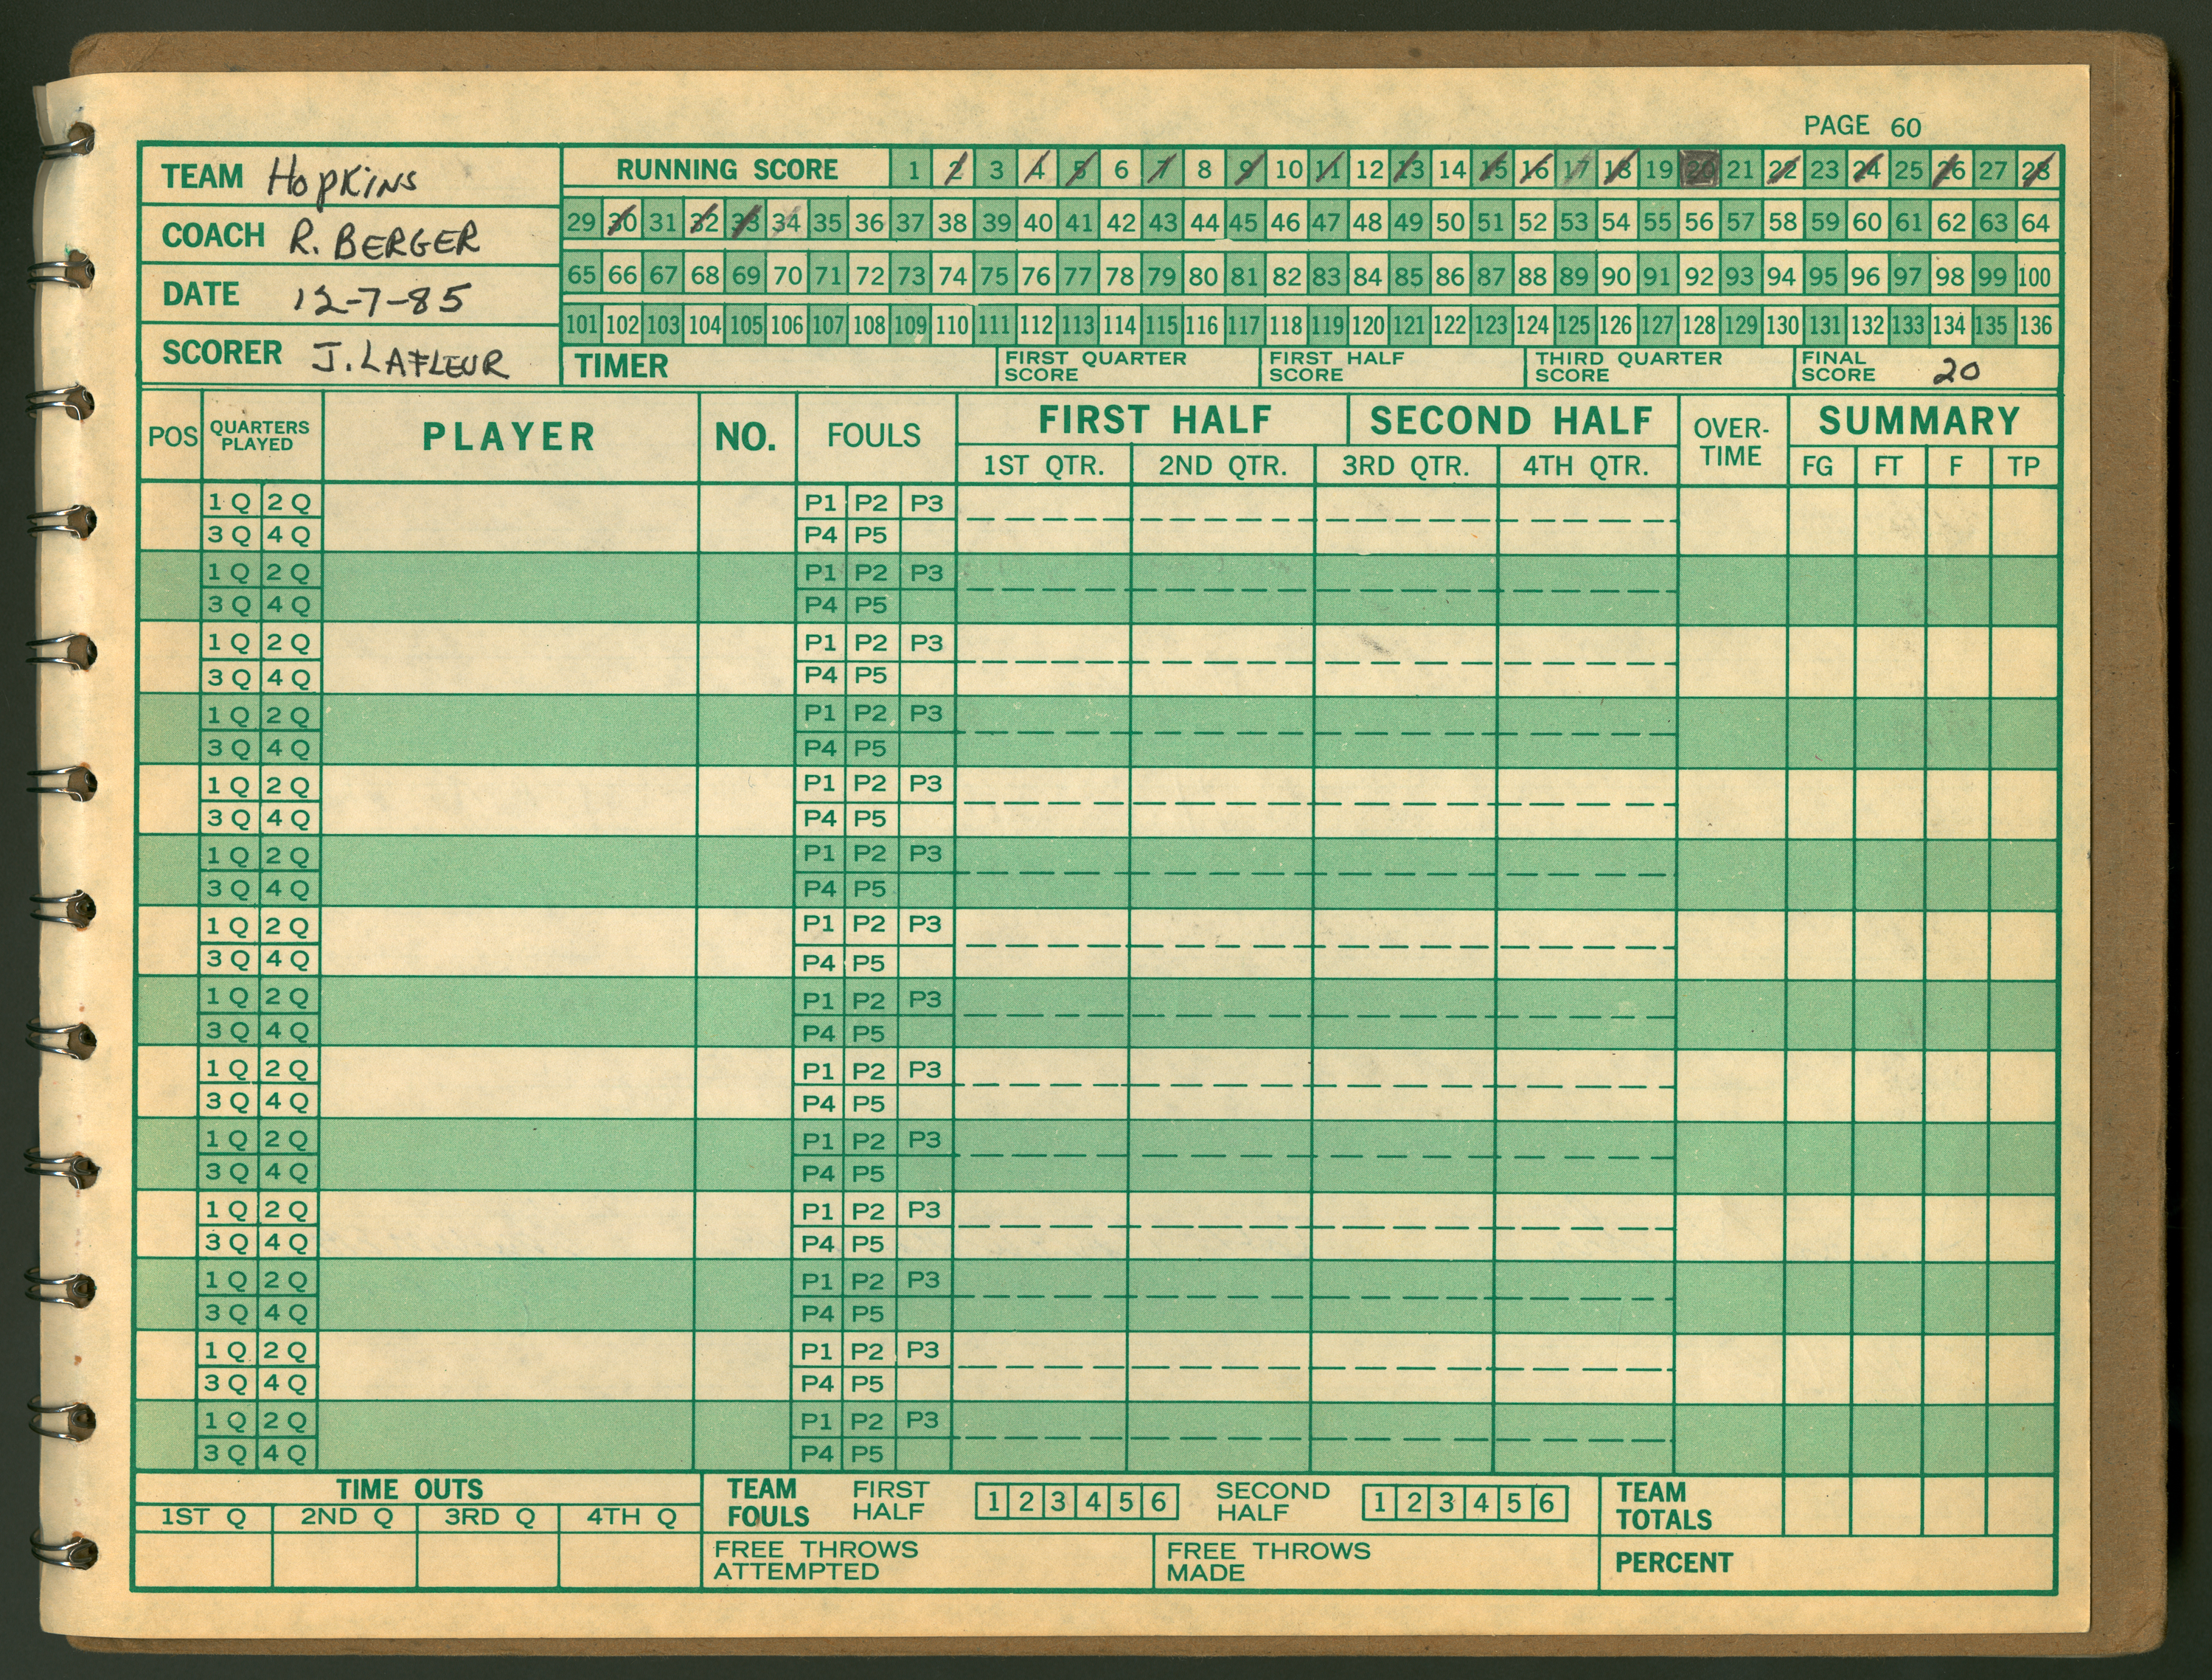 PAGE 60
TEAM Hopkins
COACH R. BERGER
DATE 12-7-85
SCORER J. LAFLEUR
RUNNING SCORE 1 2 3 4 5 6 7 8 9 10 11 12 13 14 15 16 17 18 19 20 21 22 23 24 25 26 27 28
29 30 31 32 33 34 35 36 37 38 39 40 41 42 43 44 45 46 47 48 49 50 51 52 53 54 55 56 57 58 59 60 61 62 63 64
65 66 67 68 69 70 71 72 73 74 75 76 77 78 79 80 81 82 83 84 85 86 87 88 89 90 91 92 93 94 95 96 97 98 99 100
101 102 103 104 105 106 107 108 109 110 111 112 113 114 115 116 117 118 119 120 121 122 123 124 125 126 127 128 129 130 131 132 133 134 135 136
TIMER
FIRST QUARTER
SCORE
FIRST HALF
SCORE
THIRD QUARTER
SCORE
FINAL
SCORE 20
POS
QUARTERS
PLAYED
PLAYER
NO.
FOULS
FIRST HALF
1ST QTR. 2ND QTR.
SECOND HALF
3RD QTR. 4TH QTR.
OVER-
TIME
SUMMARY
FG FT F TP
1 Q 2 Q P1 P2 P3
3 Q 4 Q P4 P5
1 Q 2 Q P1 P2 P3
3 Q 4 Q P4 P5
1 Q 2 Q P1 P2 P3
3 Q 4 Q P4 P5
1 Q 2 Q P1 P2 P3
3 Q 4 Q P4 P5
1 Q 2 Q P1 P2 P3
3 Q 4 Q P4 P5
1 Q 2 Q P1 P2 P3
3 Q 4 Q P4 P5
1 Q 2 Q P1 P2 P3
3 Q 4 Q P4 P5
1 Q 2 Q P1 P2 P3
3 Q 4 Q P4 P5
1 Q 2 Q P1 P2 P3
3 Q 4 Q P4 P5
1 Q 2 Q P1 P2 P3
3 Q 4 Q P4 P5
1 Q 2 Q P1 P2 P3
3 Q 4 Q P4 P5
1 Q 2 Q P1 P2 P3
3 Q 4 Q P4 P5
1 Q 2 Q P1 P2 P3
3 Q 4 Q P4 P5
1 Q 2 Q P1 P2 P3
3 Q 4 Q P4 P5
TIME OUTS
1ST Q 2ND Q 3RD Q 4TH Q
TEAM
FOULS
FIRST
HALF
1 2 3 4 5 6
SECOND
HALF
1 2 3 4 5 6
TEAM
TOTALS
FREE THROWS
ATTEMPTED
FREE THROWS
MADE
PERCENT